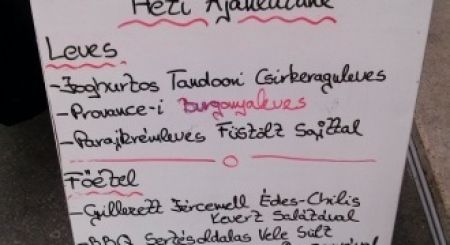 Heti Ajánlatunk
Leves
-Joghurtos Tandoori Csirkeraguleves
-Provance-i Burgonyaleves
-Parajkrémleves Füstölt Sajttal
Főétel
-Grillezett Jércemell Édes-Chilis
Kevert Salátával
-BBQ Sertésoldalas Vele Sült